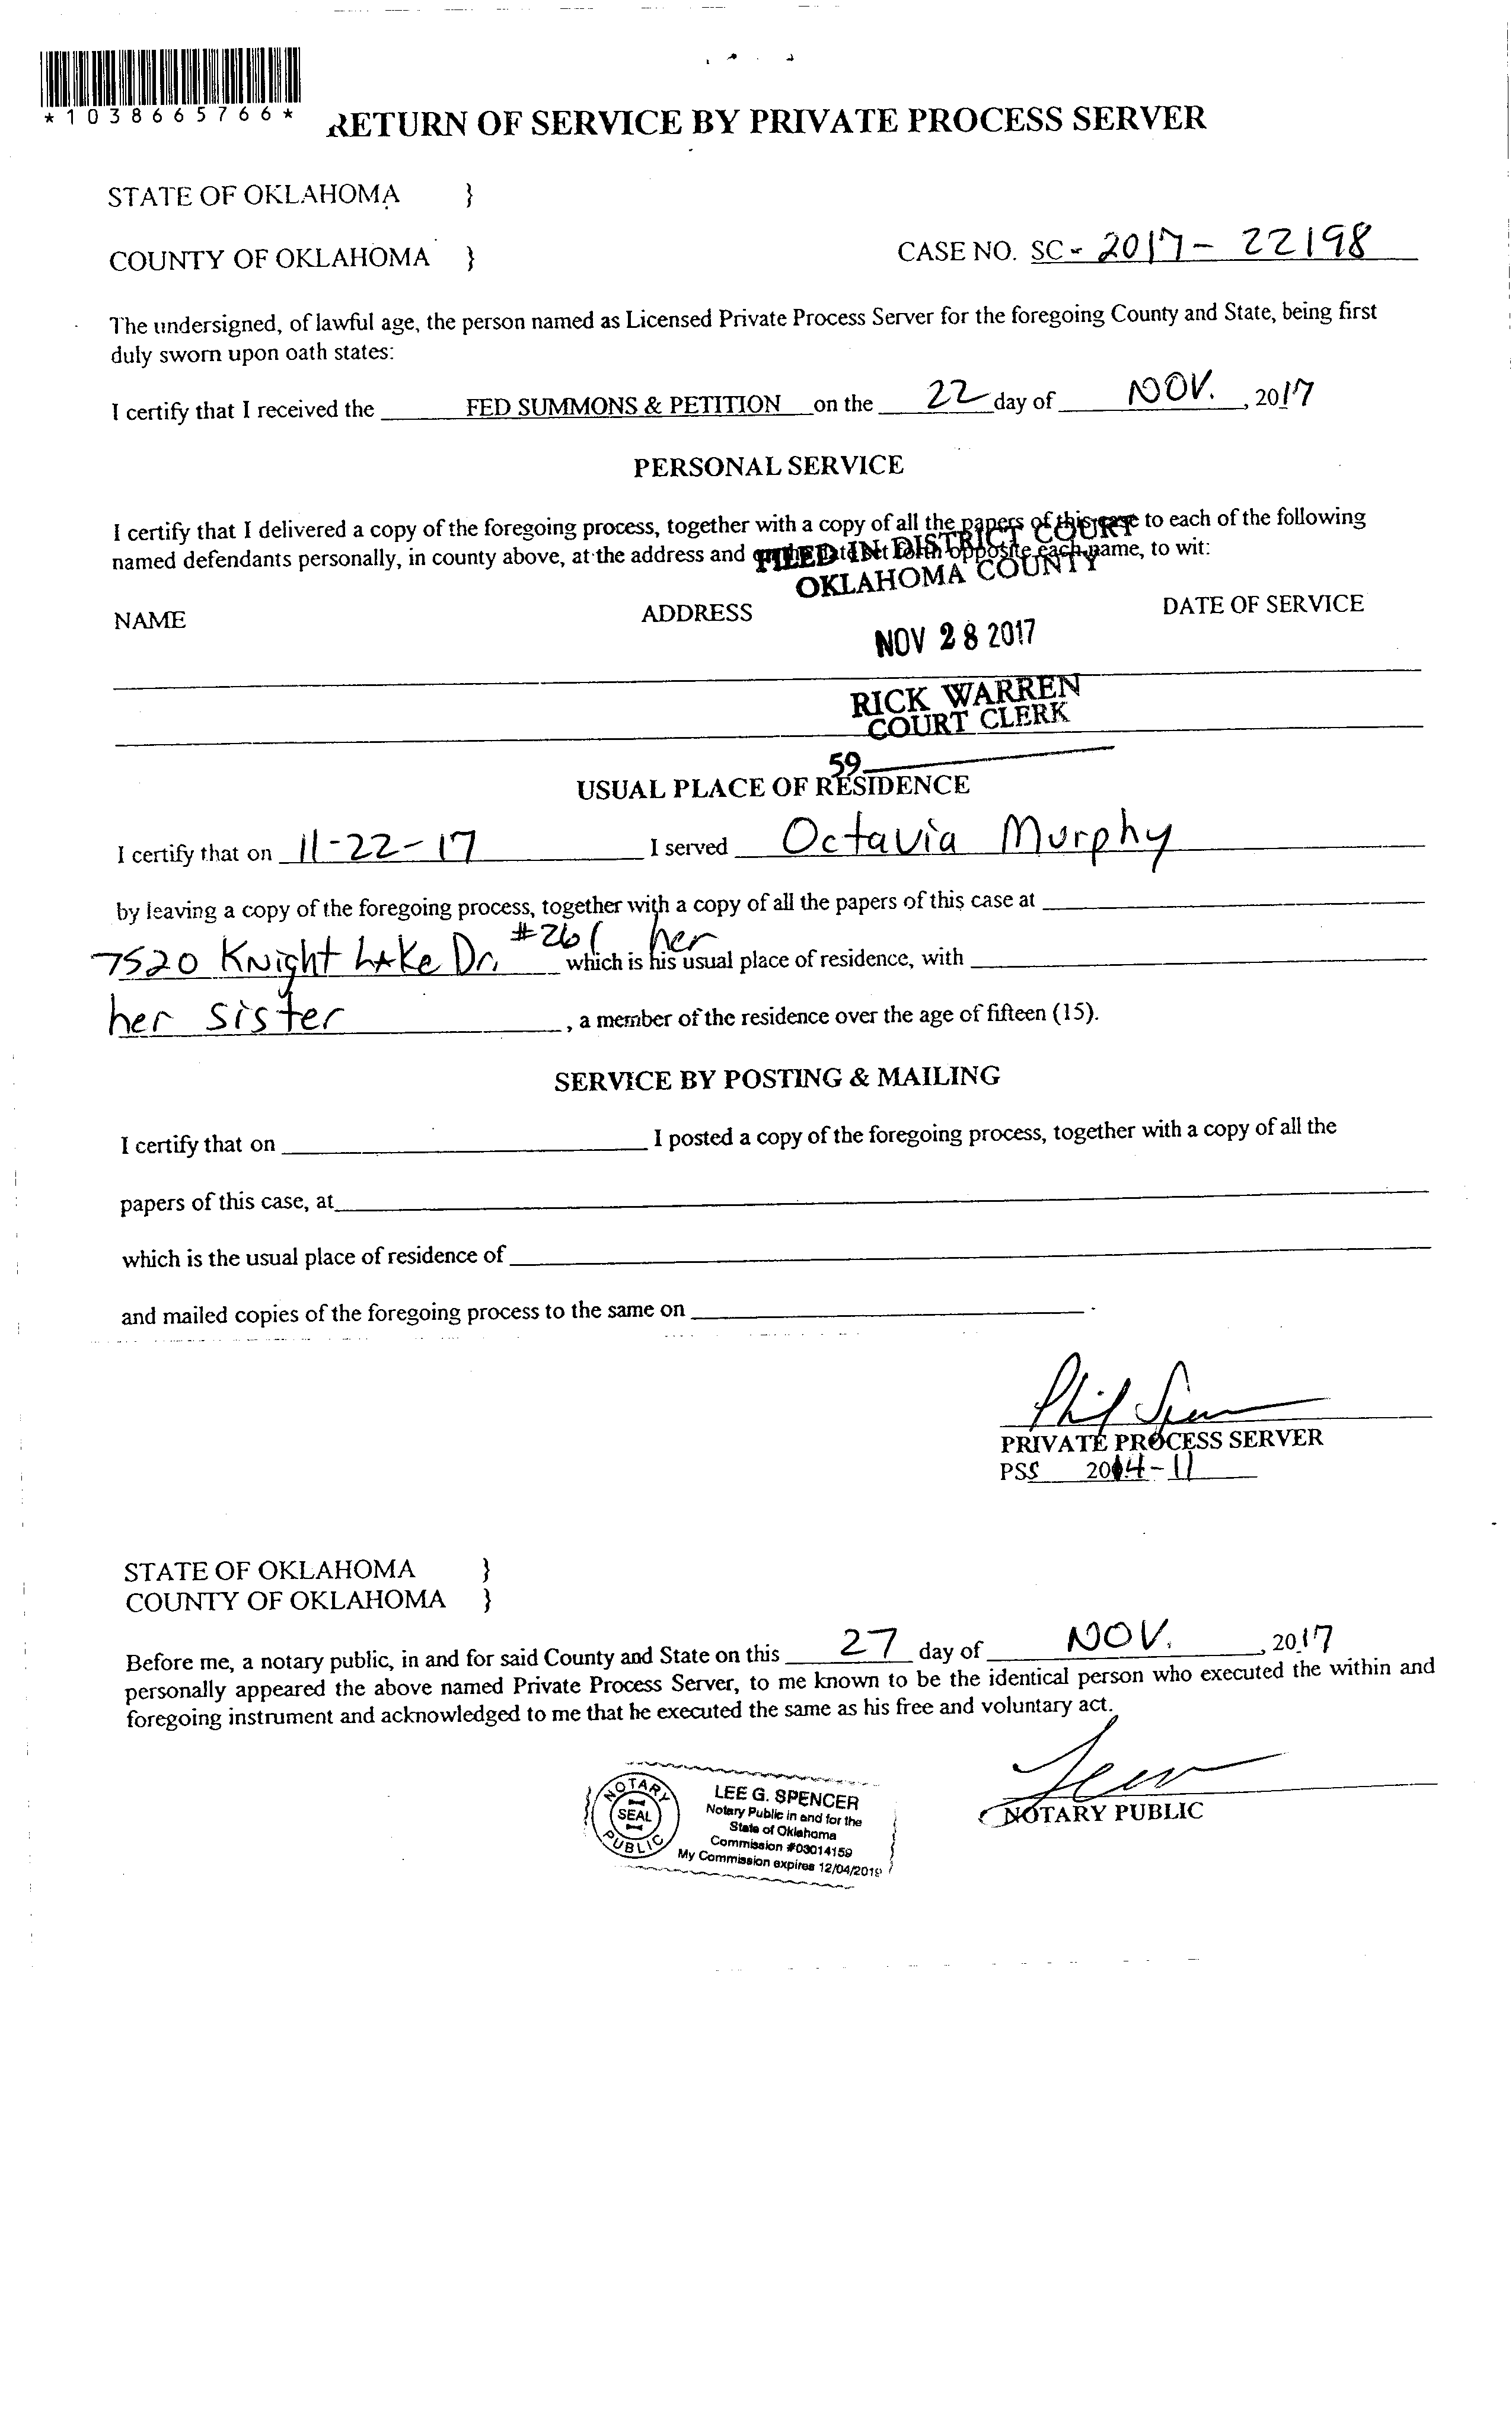 *1038665766*
RETURN OF SERVICE BY PRIVATE PROCESS SERVER
STATE OF OKLAHOMA }
COUNTY OF OKLAHOMA }
CASE NO. SC - 2017 - 22198
The undersigned, of lawful age, the person named as Licensed Private Process Server for the foregoing County and State, being first
duly sworn upon oath states:
I certify that I received the FED SUMMONS & PETITION on the 22 day of NOV. , 2017
PERSONAL SERVICE
I certify that I delivered a copy of the foregoing process, together with a copy of all the papers of this case to each of the following
named defendants personally, in county above, at the address and opposite each name, to wit:
FILED IN DISTRICT COURT
OKLAHOMA COUNTY
NAME ADDRESS DATE OF SERVICE
NOV 28 2017
RICK WARREN
COURT CLERK
59
USUAL PLACE OF RESIDENCE
I certify that on 11-22-17 I served Octavia Murphy
by leaving a copy of the foregoing process, together with a copy of all the papers of this case at
7520 Knight Lake Dr. #261 her which is his usual place of residence, with
her sister , a member of the residence over the age of fifteen (15).
SERVICE BY POSTING & MAILING
I certify that on I posted a copy of the foregoing process, together with a copy of all the
papers of this case, at
which is the usual place of residence of
and mailed copies of the foregoing process to the same on .
PRIVATE PROCESS SERVER
PSS 2014-11
STATE OF OKLAHOMA }
COUNTY OF OKLAHOMA }
Before me, a notary public, in and for said County and State on this 27 day of NOV. , 2017
personally appeared the above named Private Process Server, to me known to be the identical person who executed the within and
foregoing instrument and acknowledged to me that he executed the same as his free and voluntary act.
NOTARY PUBLIC
NOTARY
SEAL
PUBLIC
LEE G. SPENCER
Notary Public in and for the
State of Oklahoma
Commission #03014159
My Commission expires 12/04/2019